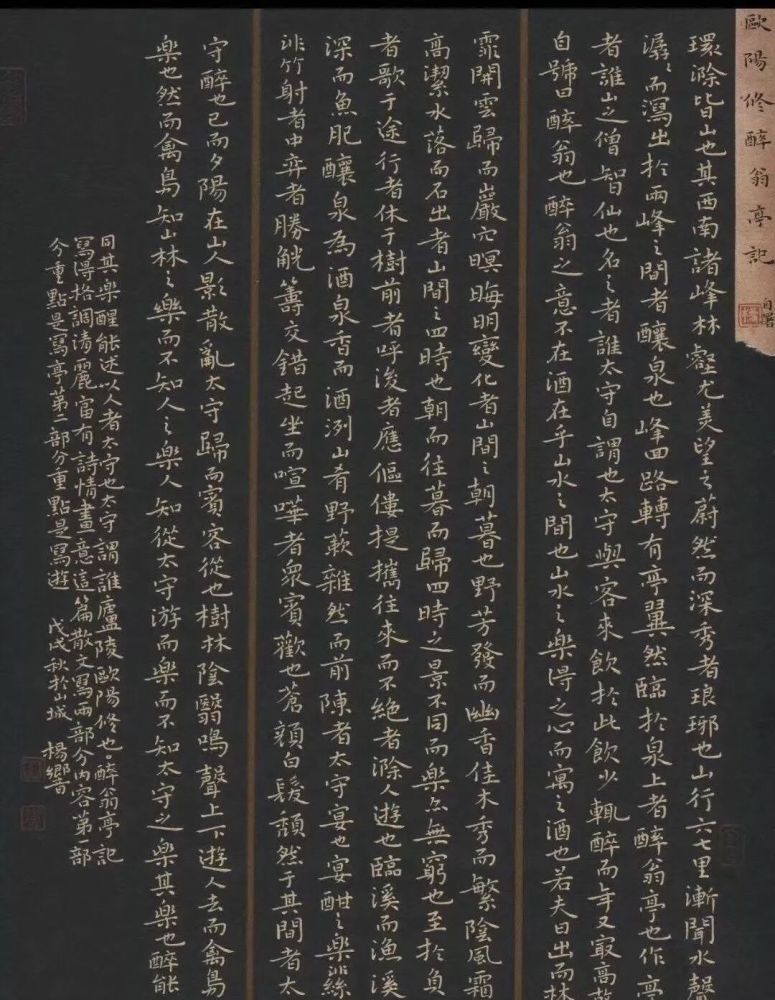 歐陽修醉翁亭記
自署
環滁皆山也其西南諸峰林壑尤美望之蔚然而深秀者琅琊也山行六七里漸聞水聲
潺潺而瀉出於兩峰之間者釀泉也峰回路轉有亭翼然臨於泉上者醉翁亭也作亭
者誰山之僧智仙也名之者誰太守自謂也太守與客來飲於此飲少輒醉而年又最高故
自號曰醉翁也醉翁之意不在酒在乎山水之間也山水之樂得之心而寓之酒也若夫日出而林
霏開雲歸而巖穴暝晦明變化者山間之朝暮也野芳發而幽香佳木秀而繁陰風霜
高潔水落而石出者山間之四時也朝而往暮而歸四時之景不同而樂亦無窮也至於負
者歌于途行者休于樹前者呼後者應傴僂提攜往來而不絕者滁人遊也臨溪而漁溪
深而魚肥釀泉為酒泉香而酒洌山肴野蔌雜然而前陳者太守宴也宴酣之樂非絲
非竹射者中弈者勝觥籌交錯起坐而喧嘩者眾賓歡也蒼顏白髮頹然于其間者太
守醉也已而夕陽在山人影散亂太守歸而賓客從也樹林陰翳鳴聲上下遊人去而禽鳥
樂也然而禽鳥知山林之樂而不知人之樂人知從太守游而樂而不知太守之樂其樂也醉能
同其樂醒能述以人者太守也太守謂誰廬陵歐陽修也。醉翁亭記
寫得格調清麗富有詩情畫意這篇散文寫兩部分內容第一部
分重點是寫亭第二部分重點是寫遊 戊戌秋於山城 楊鄉音